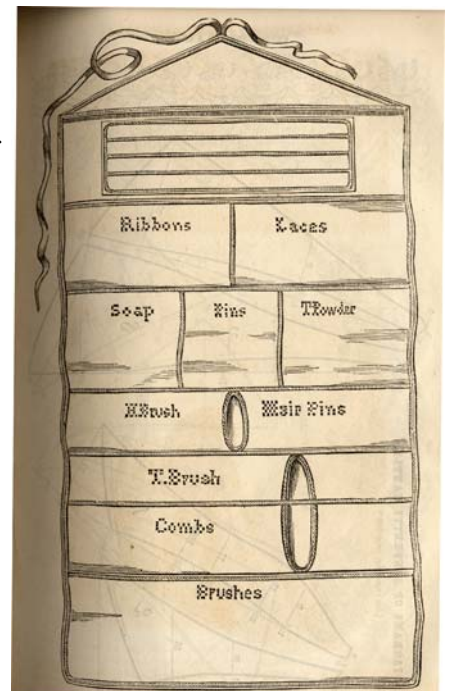 Ribbons Laces
Soap Pins T.Powder
N.Brush Hair Pins
T.Brush
Combs
Brushes